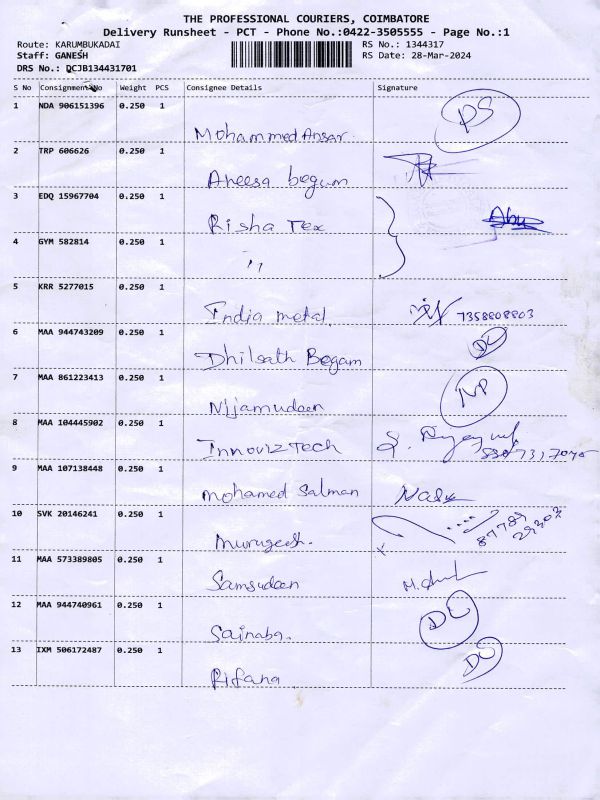 THE PROFESSIONAL COURIERS, COIMBATORE
Delivery Runsheet - PCT - Phone No.:0422-3505555 - Page No.:1
Route: KARUMBUKADAI RS No.: 1344317
Staff: GANESH RS Date: 28-Mar-2024
DRS No.: QCJB134431701
S No Consignment No Weight PCS Consignee Details Signature
1 NDA 906151396 0.250 1
Mohammed Ansar. DS
2 TRP 606626 0.250 1
Aneesa begum
3 EDQ 15967704 0.250 1
Risha Tex
4 GYM 582814 0.250 1
"
5 KRR 5277015 0.250 1
India metal. 7358808803
6 MAA 944743209 0.250 1
Dhilsath Begam DL
7 MAA 861223413 0.250 1
Nijamudeen NP
8 MAA 104445902 0.250 1
Innoviz Tech
9 MAA 107138448 0.250 1
Mohamed Salman
10 SVK 20146241 0.250 1
Murugesh. 87789
29303
11 MAA 573389805 0.250 1
Samsudeen
12 MAA 944740961 0.250 1
Sainaba. DL
13 IXM 506172487 0.250 1
Rifana DS